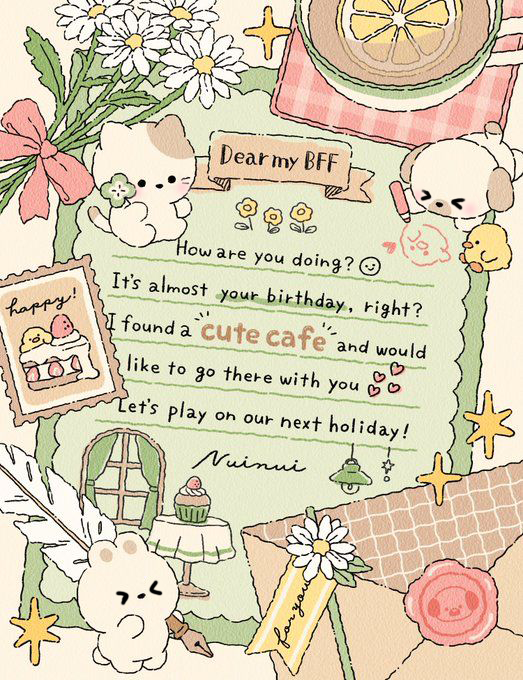 Dear my BFF
How are you doing?
It's almost your birthday, right?
I found a cute cafe and would
like to go there with you
Let's play on our next holiday!
Nuinui
happy!
for you